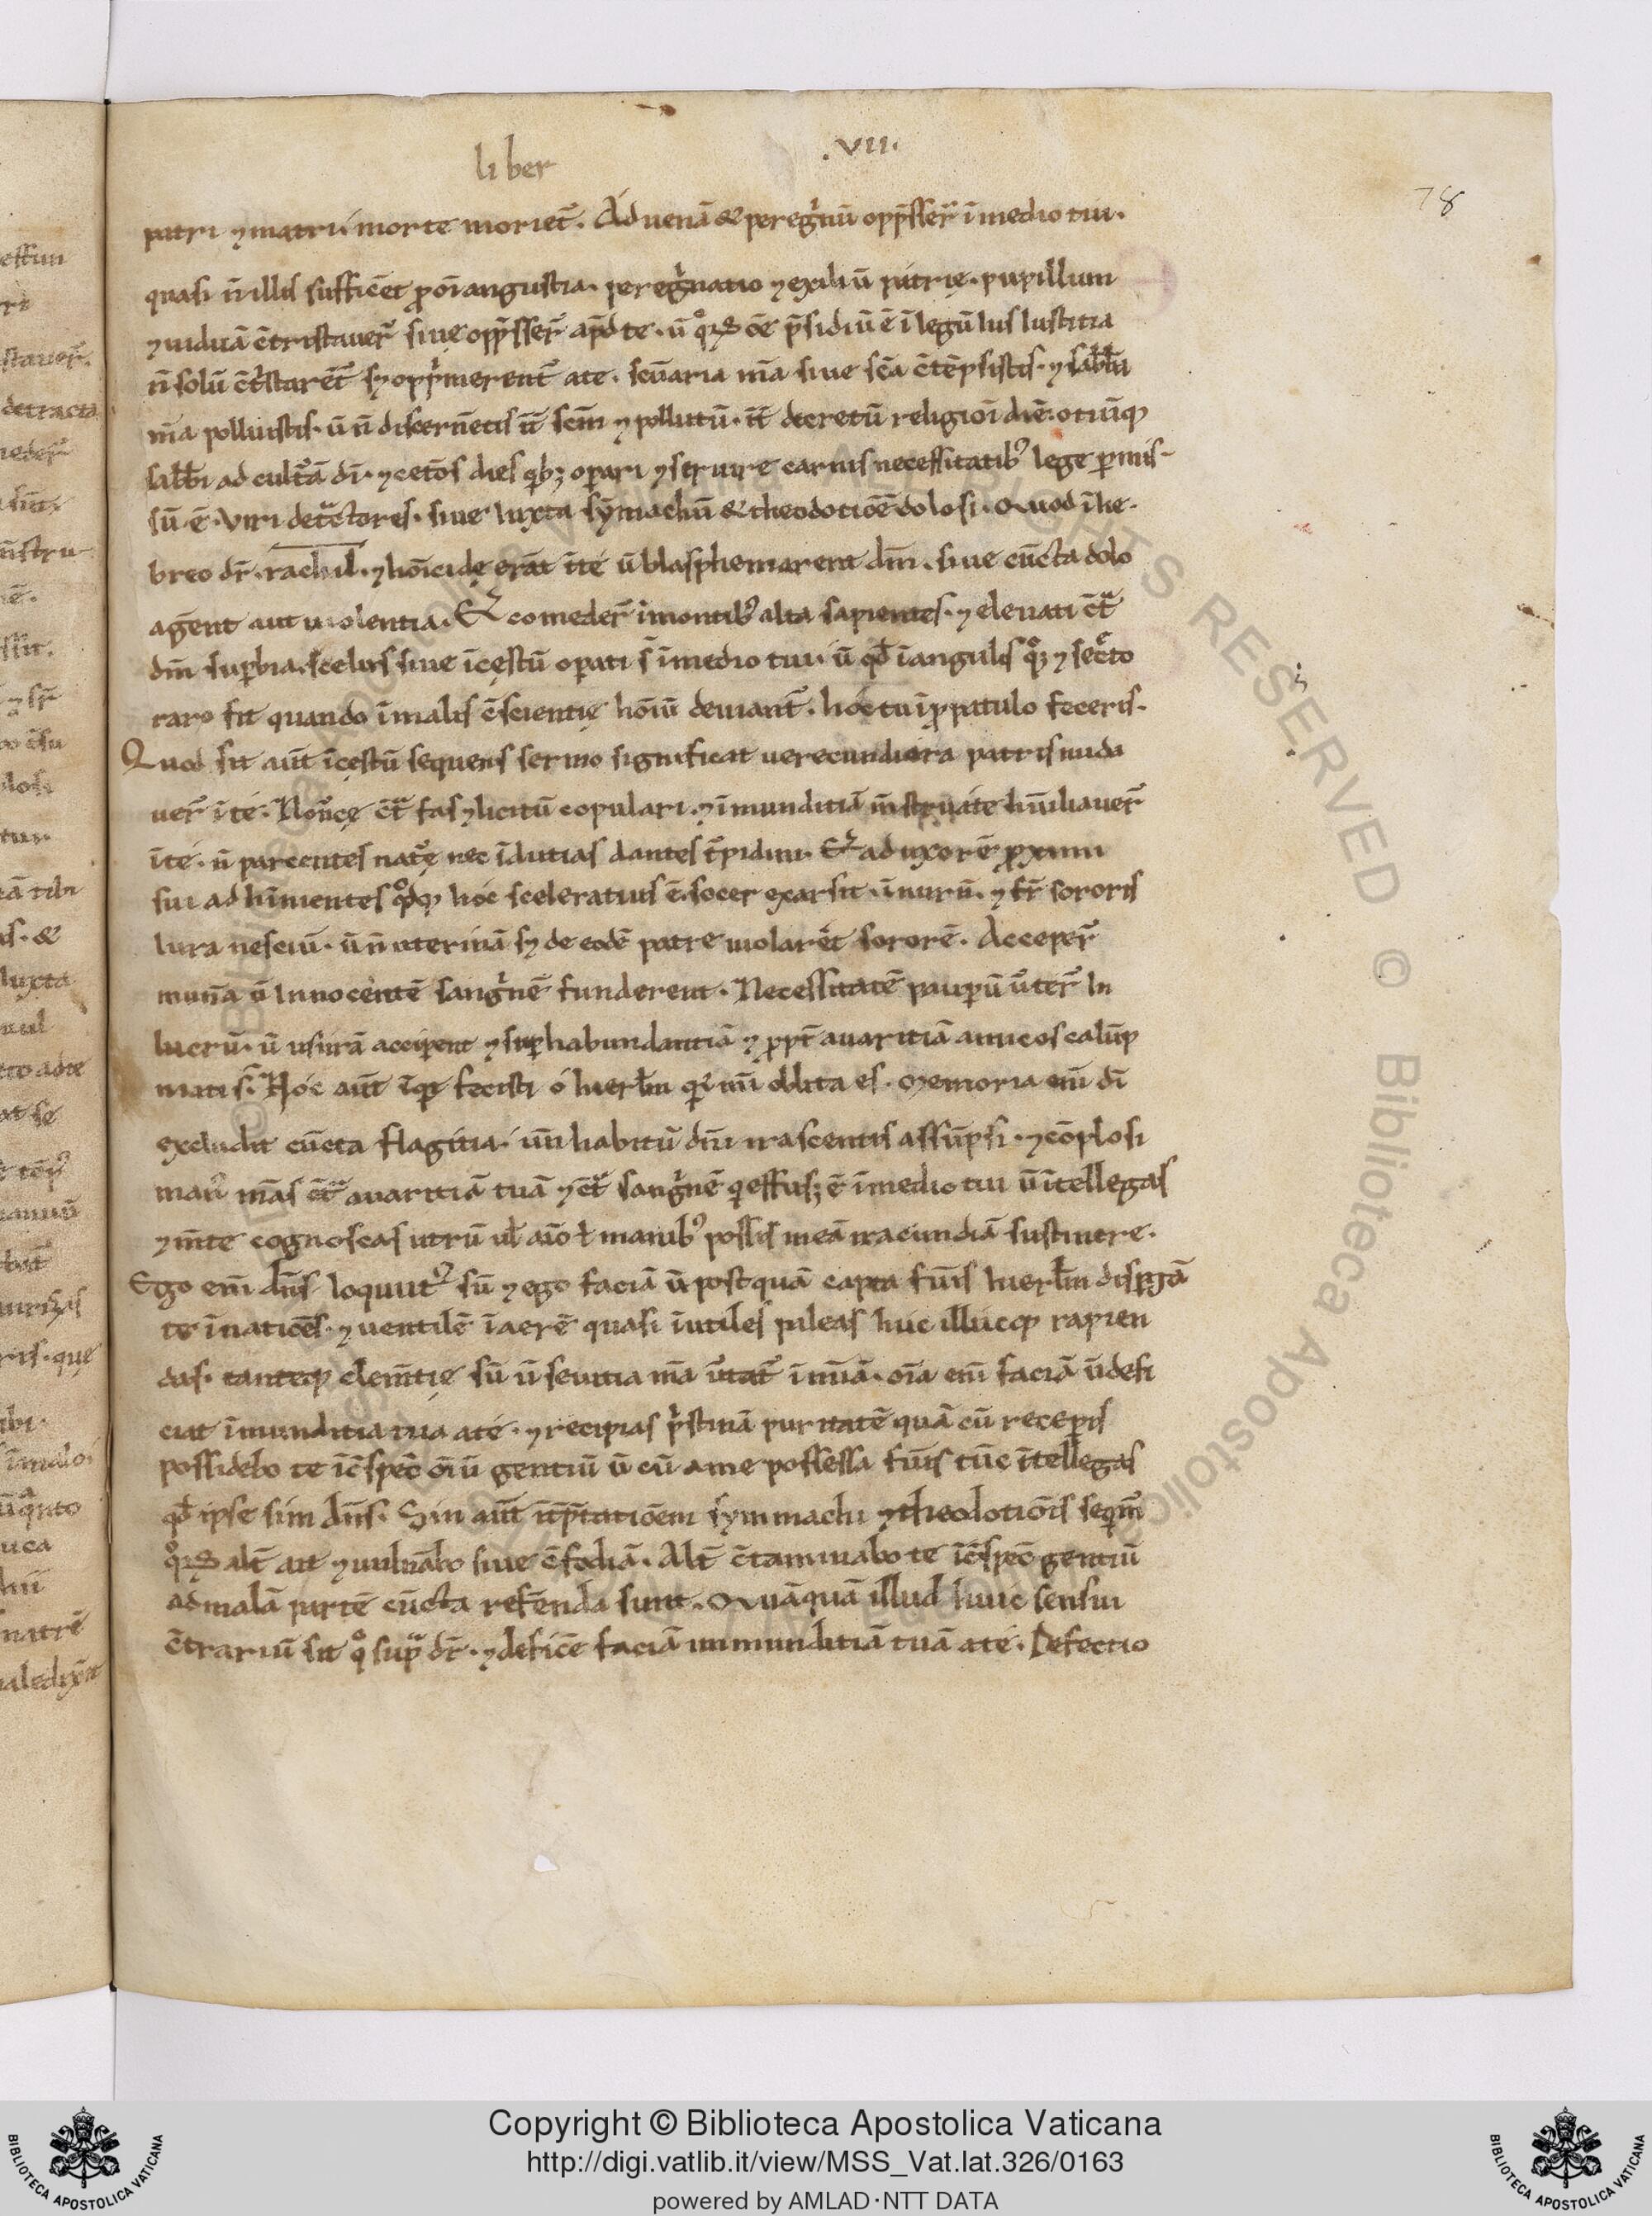 liber .VII.
78
patri ⁊ matri. morte moriet᷑. Aduenā & pereg̾nū opp̄sser᷑ ī medio tui.
quasi n̄ illis sufficēt ꝓ oī angustia. pereg̾natio ⁊ exiliū patrię. pupillum
⁊ uiduā c̄tristauer᷑ siue opp̄sser᷑ apd̄ te. ū
n̄ solū c̄t̾starēt᷑ sꝫ opp̾merent᷑ a te. sc̄uaria m̄a siue sc̄a c̄tēpsistis. ⁊ sabb̄a
m̄a polluistis. ū n̄ discern̄etis it̄ sc̄m ⁊ pollutū. it̄ decretū religioī diē. otiūqꝫ
sabb̄i ad cult᷑ā dī. ⁊ cet̄os dies qͥbꝫ oꝑari ⁊ seruire carnis necessitatibꝰ lege ꝑmis-
sū ē. Viri det̾ctores. siue iuxta sȳmachū & theodotiōē dolosi. Quod ī he-
breo dr̄. rachil. ⁊ hōīcidę erāt ī te ū blasphemarent dm̄. siue cūcta dolo
aḡent aut uiolentia. Et comeder᷑ ī montibꝰ alta sapientes. ⁊ eleuati c̄tͣ
dm̄ suꝑbia. scelus siue īcęstū oꝑati s̄ ī medio tui. ū qd̄ ī angulis qͦqꝫ ⁊ sec̾to
raro fit quando ī malis c̄scientię hōīū deuiant᷑. hoc tu ī ꝓpatulo feceris.
Quod sit aūt īcęstū sequens sermo significat uerecundiora patris nuda
uer᷑ ī te. Nou̾cę c̄tͣ fas ⁊ licitū copulari. ⁊ īmunditiā m̄struatę hūīliauer᷑
ī te. n̄ parcentes nat᷑ę nec īdutias dantes t᷑pidini. Et ad uxorē ꝓximi
sui adhīnientes qͦdqꝫ hoc sceleratius ē. socer exarsit. ī nurū. ⁊ fr̄ sororis
iura nesciū. ū n̄ uterinā sꝫ de eodē patre uiolarēt sororē. Acceper᷑
mun̄a ū innocentē sang̾nē funderent. Necessitatē pauꝑū ūter᷑ in
lucrū. ū usurā acciꝑent ⁊ suꝑhabundantiā ⁊ ꝓpt̄ auaritiā amicos calūp
niati s̄. Hoc aūt fecisti o hierlm̄ qͥ m̄ī oblita es. Memoria em̄ dī
excludit cūcta flagitia. un̄ habitū dīu irascentis assūpsi. ⁊ cōplosi
manꝰ m̄as c̄tͣ auaritiā tuā ⁊ c̄tͣ sang̾nē qͥ effusꝫ ē ī medio tui ū ītellegas
⁊ m̄te cognoscas utrū ul̄ aīo ł manibꝰ possis meā iracundiā sustinere.
Ego em̄ dn̄s loquutꝰ sū ⁊ ego faciā ū postquā capta fūis hierlm̄ disꝑgā
te ī natiōēs. ⁊ uentilē ī aerē quasi īutiles paleas huc illucqꝫ rapien
das. tantęqꝫ clem̄tię sū ū seuitia m̄a ūtat᷑ ī oīa em̄ faciā ū defi
ciat īmunditia tua a te. ⁊ recipias p̾stinā puritatē quā cū receꝑis
possidebo te ī c̄spec̄ oīū gentiū ū cū a me possessa fūis tūc ītellegas
qd̄ ipse sim dn̄s. Sin aūt īt̄p̄tatiōem symmachi ⁊ theodotiōis seqͥm᷑
alt̄ ait ⁊ uuln̄abo siue c̄fodiā. Alt̄ c̄taminabo te ī c̄spec̄ gentiū
ad malā partē cūcta ref̄enda sunt. Quāquā illud huic sensui
c̄trariū sit qͦ supͣ dr̄. ⁊ deficē faciā immunditiā tuā a te. Defectio
Copyright © Biblioteca Apostolica Vaticana
http://digi.vatlib.it/view/MSS_Vat.lat.326/0163
powered by AMLAD·NTT DATA